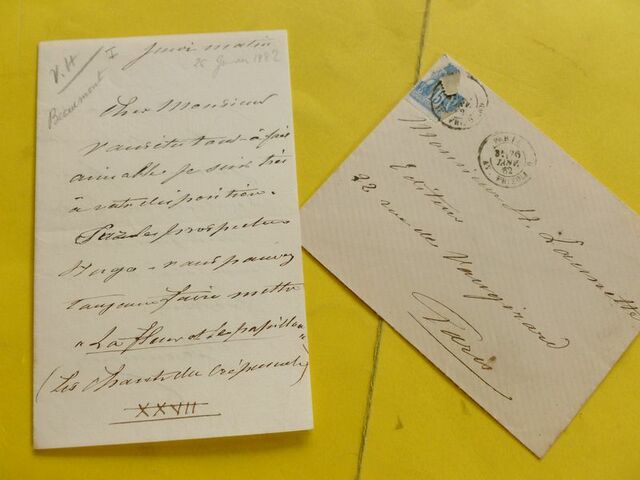 V. H
I
Beaumont
Jeudi matin
26 Janvier 1882
Cher Monsieur
Vous êtes tout-à-fait
aimable je suis très
à votre disposition.
les prospectus
Hugo - vous pouvez
toujours faire mettre
"La fleur et le papillon"
(Les Chants du Crépuscule)
XXVII
15
PARIS
26
JANV
82
Monsieur H. Launette
Editeur
22 rue de Vaugirard
Paris